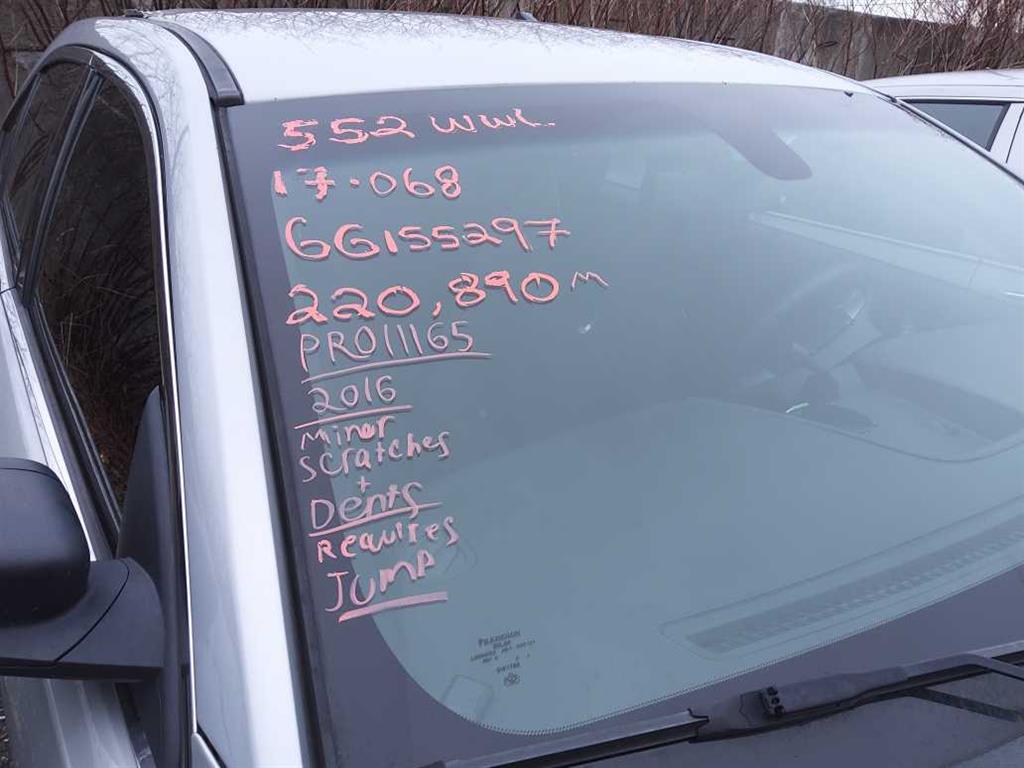 552 WWL
17-068
GG155297
220,890 M
PRO11165
2016
Minor
Scratches
+
Dents
Requires
JUMP